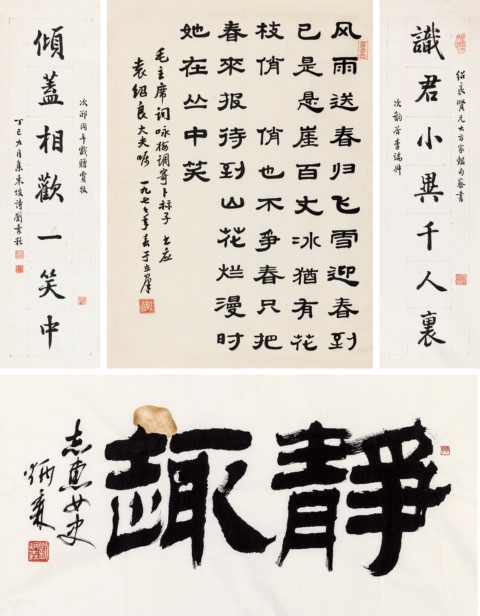 識君小異千人裏
次韵答李端叔
风雨送春归飞雪迎春到
已是悬崖百丈冰犹有花
枝俏 俏也不争春只把
春來报待到山花烂漫时
她在丛中笑
毛主席词咏梅调寄卜祘子 书应
袁绍良大夫嘱 一九七七年春于立群
傾蓋相歡一笑中
次邵同年戲贈賈收
丁巳九月集東坡詩劉
靜趣
志惠女史
炳森